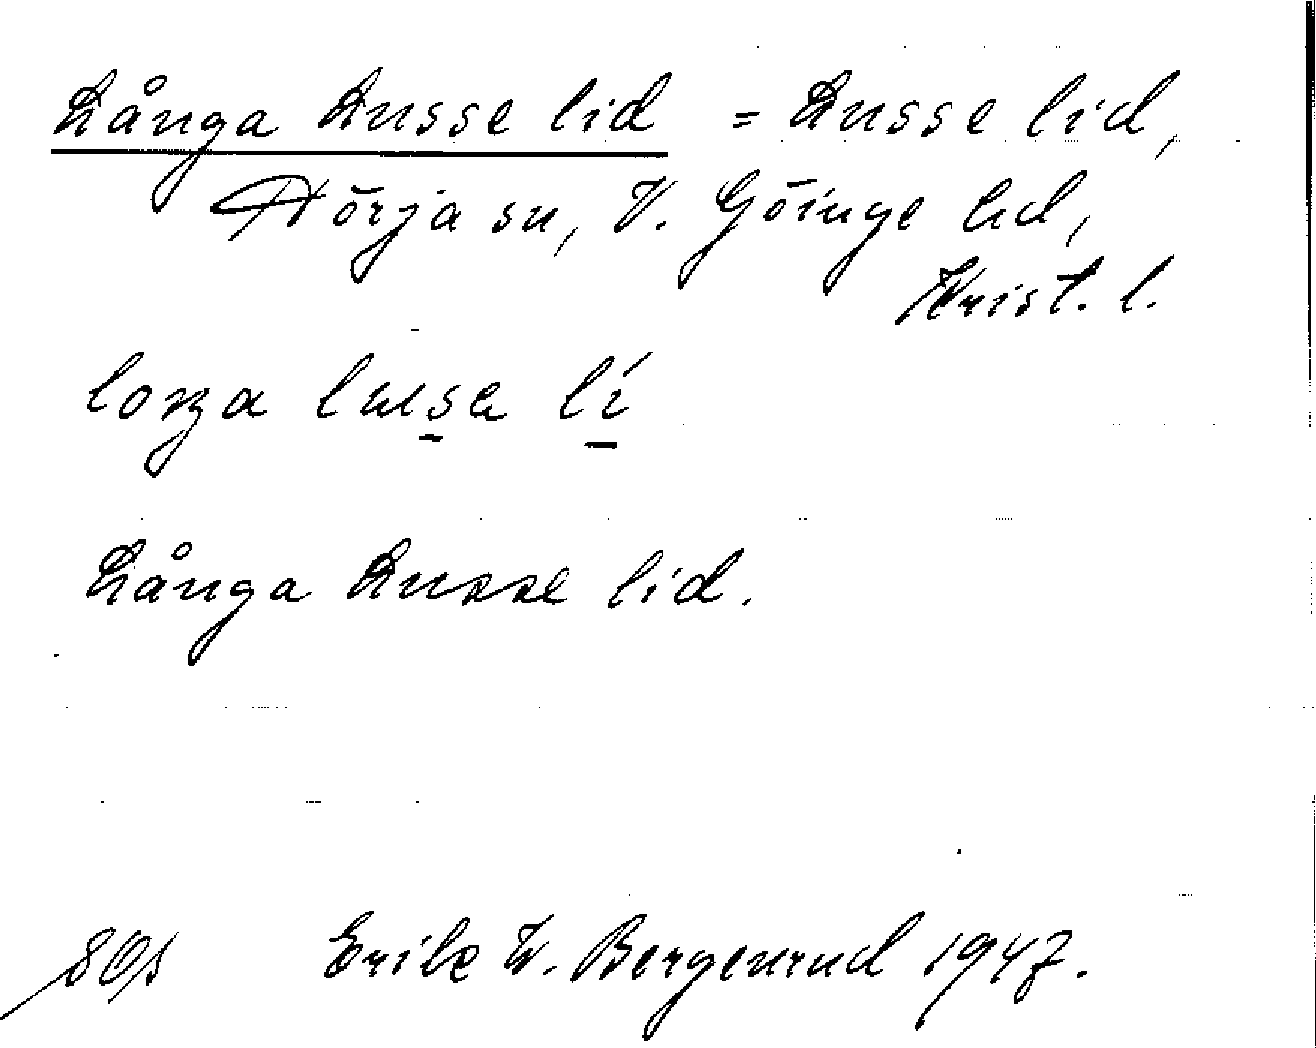 Långa Lusse lid = Lusse lid,
Hörja sn, V. Göinge hd,
Krist. l.
lí
Långa Lusse lid.
Erik W. Bergenrud 1947.